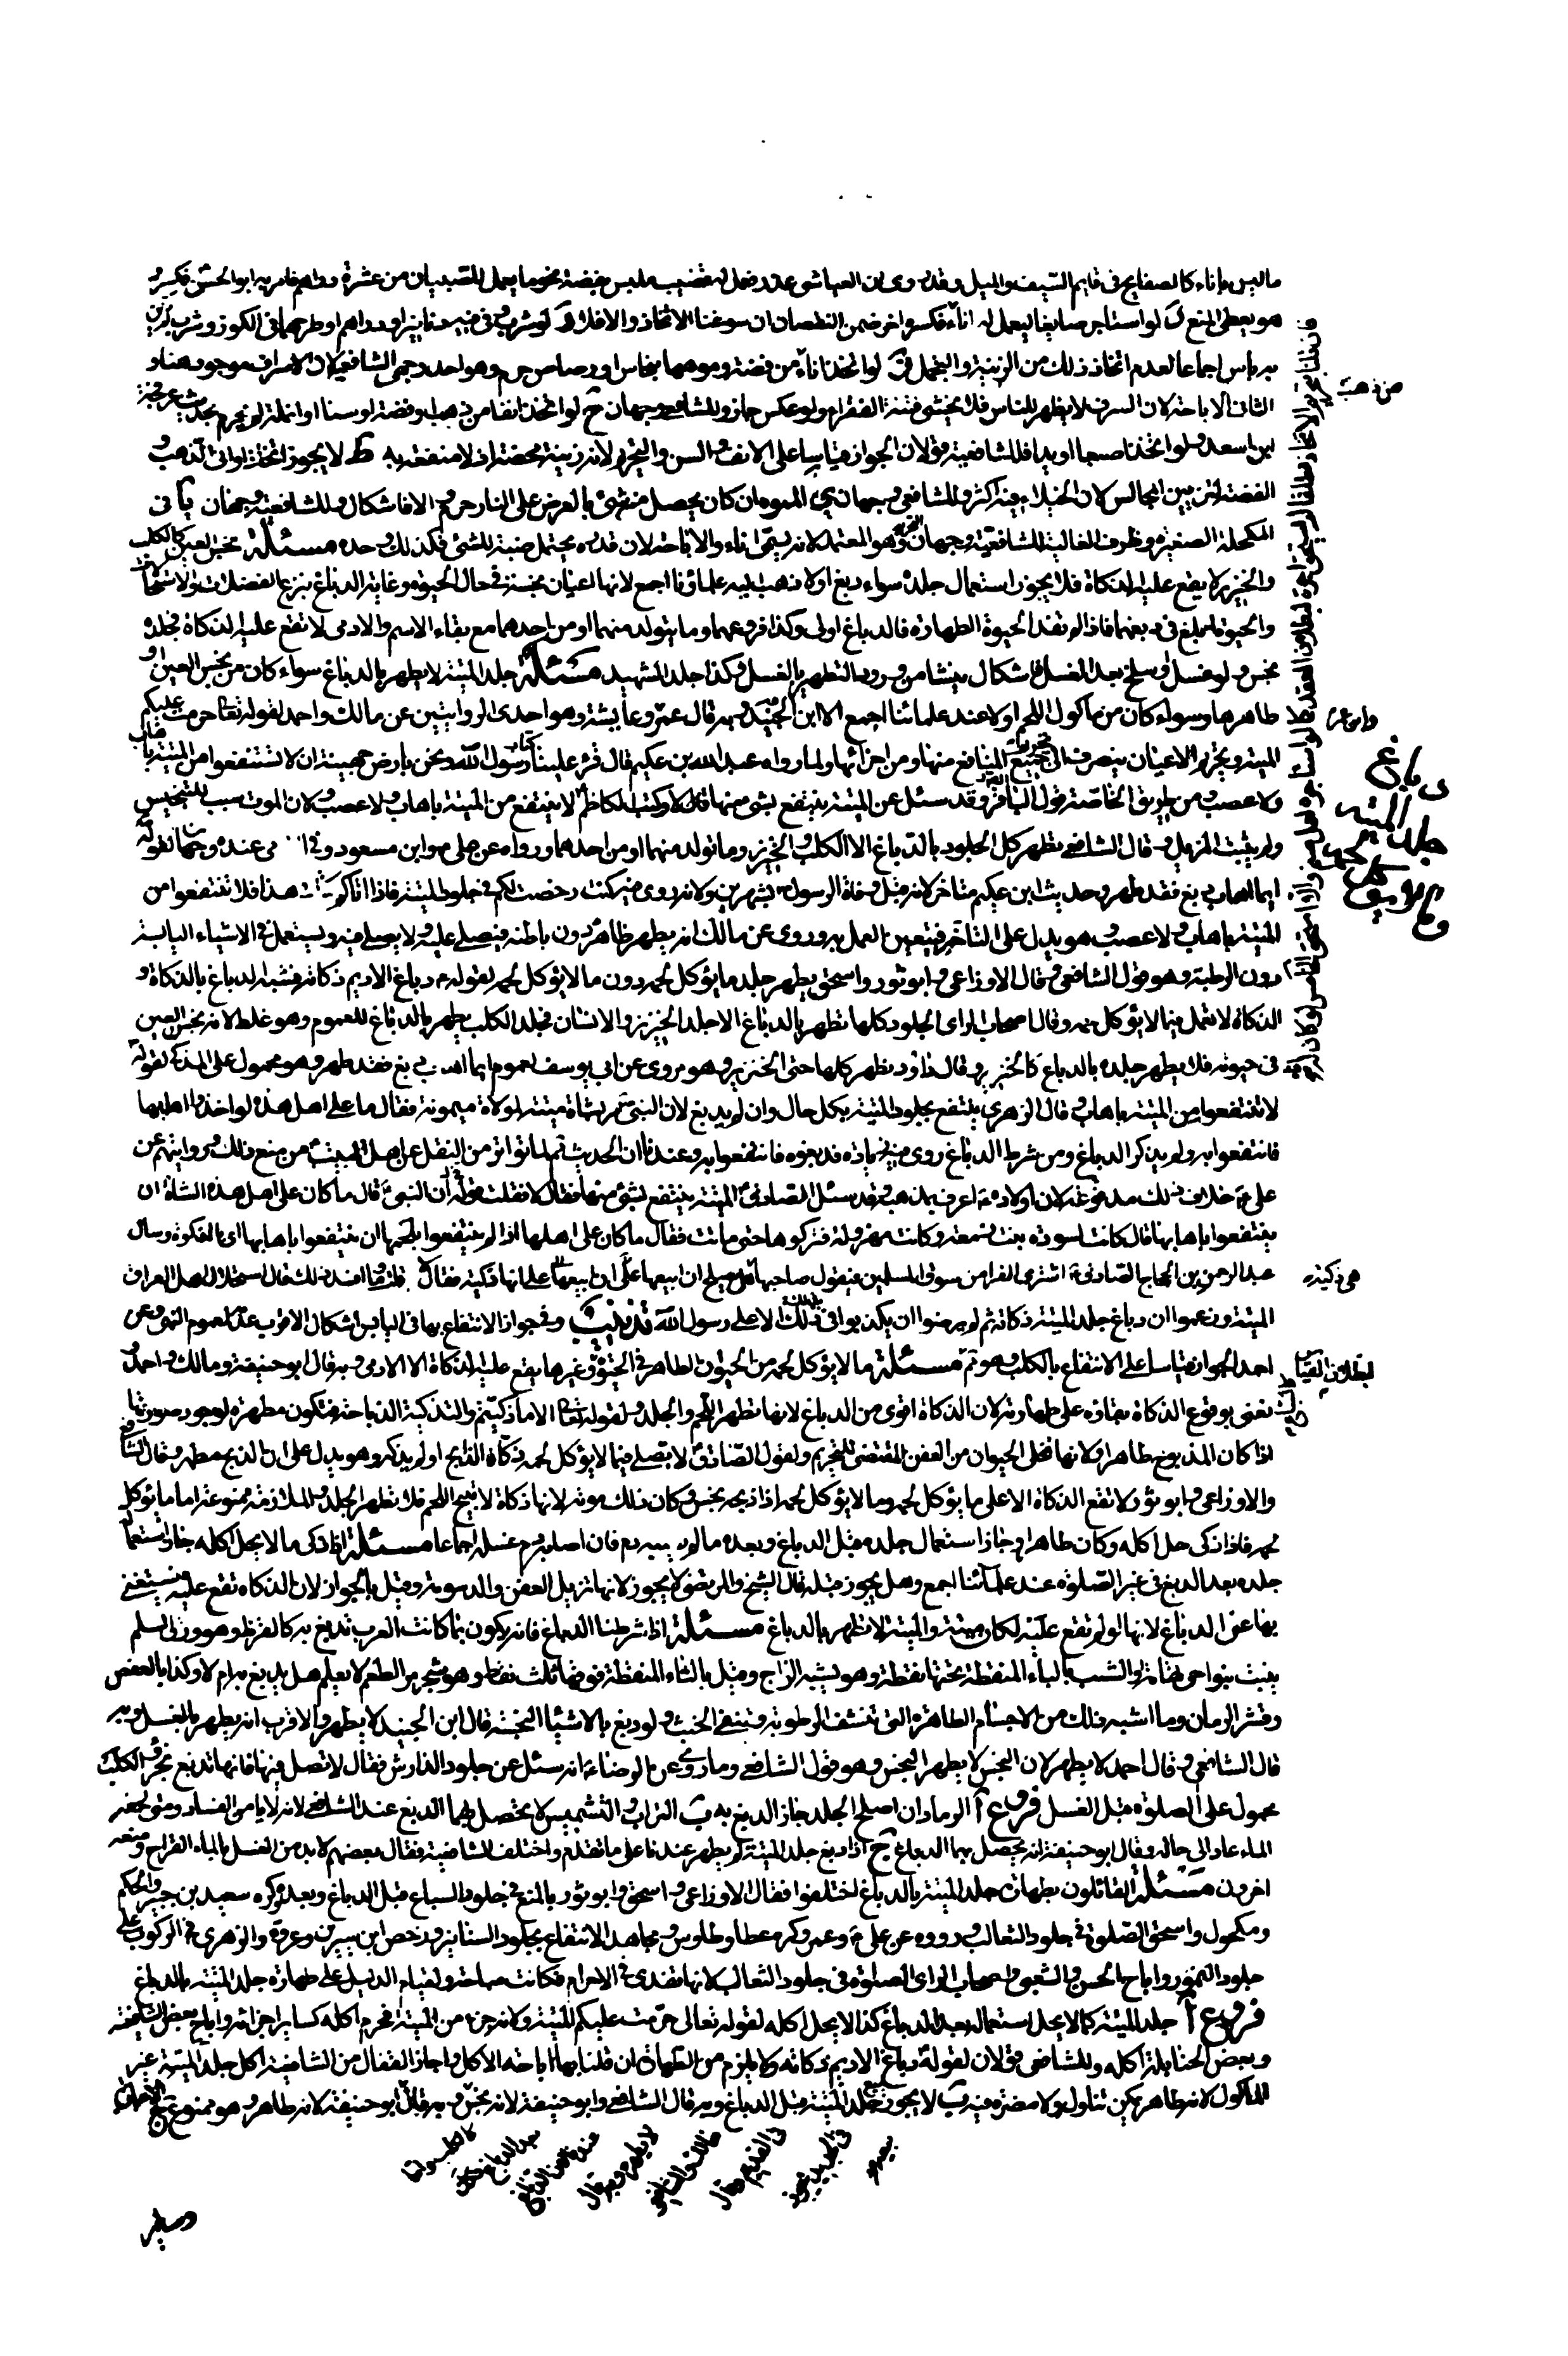 ما ليس باناء كالصفايح في قايم السيف والميل وقد روى ان العباس عذر فعمل له قضيب ملبس بفضة نحو ما يعمل للصبيان من عشرة دراهم فامر به ابو الحسن فكسر و
هو يعطي المنع لو استاجر صايغا ليعمل له اناء فكسر اخر ضمن النقصان ان سوغنا الاتخاذ والا فلا لو شرب وفي فيه دنانير او دراهم او طرحهما في الكوز وشرب لم يكن
به باس اجماعا لعدم اتخاذ ذلك من الزينة والتجمل لو اتخذ اناء من فضة وموهها بنحاس او رصاص حرم وهو احد وجهي الشافعي لان الاسراف موجود هنا و
الثاني الاباحة لان السرف لا يظهر للناس فلا يخشى فتنة الفقراء ولو عكس جاز وللشافعي وجهان لو اتخذ انفا من ذهب او فضة او سنا او انملة لم يحرم بحديث عرفجة
ابن اسعد ولو اتخذ اصبعا او يدا فللشافعية قولان الجواز قياسا على الانف والسن والتحريم لانه زينة محضة اذ لا منفعة به ط لا يجوز اتخاذ اواني الذهب و
الفضة لتزيين المجالس لان الخيلاء فيه اكثر وللشافعي وجهان المموه ان كان يحصل منه شئ بالعرض على النار حرم والا فاشكال وللشافعية وجهان يا في
المكحلة الصغيرة وظروف الغالية للشافعية وجهان التحريم وهو المعتمد لانه يسمى اناء والاباحة لان قدره يحتمل ضبة للشئ فكذلك وحده مسئلة نجس العين كالكلب
والخنزير لا يقع عليه الذكاة فلا يجوز استعمال جلده سواء دبغ او لا ذهب اليه علماؤنا اجمع لانها اعيان نجسة في حال الحيوة وغاية الدباغ نزع الفضلات ولاستحالات
والحيوة ابلغ في دفعها فاذا لم تفد الحيوة الطهارة فالدباغ اولى وكذا فروعهما وما يتولد منهما او من احدهما مع بقاء الاسم والادمي لا تقع عليه الذكاة فجلده
نجس ولو غسل او سلخ بعد الغسل فاشكال ينشا من ورود التطهير بالغسل وكذا جلد الشهيد مسئلة جلد الميتة لا يطهر بالدباغ سواء كان من نجس العين او
طاهرها وسواء كان من ماكول اللحم او لا عند علمائنا اجمع الا ابن الجنيد وبه قال عمر وعايشة وهو احدى الروايتين عن مالك واحمد لقوله تعالى حرمت عليكم
الميتة وتحريم الاعيان ينصرف الى تحريم جميع المنافع منها ومن اجزائها ولما رواه عبد الله بن عكيم قال قرئ علينا كتاب رسول الله ونحن بارض جهينة ان لا تنتفعوا من الميتة باهاب
ولا عصب ومن طريق الخاصة قول الباقر وقد سئل عن الميتة ينتفع بشئ منها قال لا وكتب الكاظم لا ينتفع من الميتة باهاب ولا عصب ولان الموت سبب للتنجيس
ولم يثبت المزيل وقال الشافعي تطهر كل الجلود بالدباغ الا الكلب والخنزير وما تولد منهما او من احدهما ورواه عن علي وابن مسعود وفي الادمي عنده وجهان لقوله
ايما اهاب دبغ فقد طهر وحديث ابن عكيم متاخر لانه قبل وفاة الرسول بشهرين ولانه روى فيه كنت رخصت لكم في جلود الميتة فاذا اتاكم كتابي هذا فلا تنتفعوا من
الميتة باهاب ولا عصب وهو يدل على التاخر فيتعين العمل به وروى عن مالك انه يطهر ظاهره دون باطنه فيصلى عليه ولا يصلى فيه ويستعمل في الاشياء اليابسة
دون الرطبة وهو قول الشافعي وقال الاوزاعي وابو ثور واسحق يطهر جلد ما يؤكل لحمه دون ما لا يؤكل لحمه لقوله دباغ الاديم ذكاته فشبه الدباغ بالذكاة و
الذكاة لا تعمل فيما لا يؤكل لحمه وقال اصحاب الراي الجلود كلها تطهر بالدباغ الا جلد الخنزير والانسان فجلد الكلب يطهر بالدباغ للعموم وهو غلط لانه نجس العين
في حيوته فلا يطهر جلده بالدباغ كالخنزير وقال داود يطهر كلها حتى الخنزير وهو مروي عن ابي يوسف لعموم ايما اهاب دبغ فقد طهر وهو محمول على المذكى لقوله
لا تنتفعوا من الميتة باهاب وقال الزهري ينتفع بجلود الميتة بكل حال وان لم يدبغ لان النبي مر بشاة ميتة لمولاة ميمونة فقال ما على اهل هذه لو اخذوا اهابها
فانتفعوا به ولم يذكر الدباغ ومن شرط الدباغ روى فيه اخذوه فدبغوه فانتفعوا به وعندنا ان الحديث لما تواتر من النقل عن اهل البيت من منع ذلك وروايتهم عن
علي خلاف ذلك مدفوعة لان اولاده اعرف بمذهبه وقد سئل الصادق الميتة ينتفع بشئ منها فقال لا فقلت له ان النبي قال ما كان على اهل هذه الشاة ان
ينتفعوا باهابها قال كانت لسودة بنت زمعة وكانت مهزولة فتركوها حتى ماتت فقال ما كان على اهلها اذا لم ينتفعوا بلحمها ان ينتفعوا باهابها اي بالذكوة وسال
عبد الرحمن بن الحجاج الصادق اشترى الفرا من سوق المسلمين فيقول صاحبها هي ذكية هل يصلح ان ابيعها على انها ذكية فقال لا قلت وما افسد ذلك قال استحلال اهل العراق
الميتة وزعموا ان دباغ جلد الميتة ذكاته ثم لم يرضوا ان يكذبوا في ذلك الا على رسول الله تذنيب وفي جواز الانتفاع بها في اليابس اشكال الاقرب عدمه لعموم النهي وعن
احمد الجواز قياسا على الانتفاع بالكلب وهو ثم مسئلة ما لا يؤكل لحمه من الحيوان الطاهر في الحيوة وغيرها يقع عليه الذكاة الا الادمي وبه قال ابو حنيفة ومالك واحمد و
نعني بوقوع الذكاة بقاؤه على طهارته لان الذكاة اقوى من الدباغ لانها تطهر اللحم والجلد ولقوله تعالى الا ما ذكيتم والتذكية الذباحة فتكون مطهرة لوجود صورتها
اذا كان المذبوح طاهرا ولانها تخلي الحيوان من العفن المقتضي للتحريم ولقول الصادق لا تصلي فيما لا يؤكل لحمه ذكاه الذابح او لم يذكه وهو يدل على ان الذبح مطهر وقال الشافعي
والاوزاعي وابو ثور لا تقع الذكاة الا على ما يؤكل لحمه وما لا يؤكل لحمه اذا ذبح نجس وكان ذلك موته لانها ذكاة لا تبيح اللحم فلا تطهر الجلد والملازمة ممنوعة اما ما يؤكل
لحمه فاذا ذكى حل اكله وكان طاهرا وجاز استعمال جلده قبل الدباغ وبعده ما لم يصبه دم فان اصابه دم غسله اجماعا مسئلة اذا ذكى ما لا يحل اكله جاز استعمال
جلده بعد الدبغ في غير الصلوة عند علمائنا اجمع وهل يجوز قبله قال الشيخ والمرتضى لا يجوز لانها تزيل العفن والدسومة وقيل بالجواز لان الذكاة تقع عليه فيستغنى
بها عن الدباغ لانها لو لم تقع عليه لكان ميتة والميتة لا تطهر بالدباغ مسئلة اذا شرطنا الدباغ فانه يكون بما كانت العرب تدبغ به كالقرظ وهو ورق السلم
ينبت بنواحي تهامة والشب بالباء المنقطة تحتها نقطة وهو يشبه الزاج وقيل بالثاء المنقطة فوقها ثلث نقط وهو شجر مر الطعم لا يعلم هل يدبغ به ام لا وكذا بالعفص
وقشر الرمان وما اشبه ذلك من الاجسام الطاهرة التي تنشف الرطوبة وتنفي الخبث ولو دبغ بالاشياء النجسة قال ابن الجنيد لا يطهر والاقرب انه يطهر بالغسل وبه
قال الشافعي وقال احمد لا يطهر لان النجس لا يطهر النجس وهو قول الشافعي وما روى عن الرضا انه سئل عن جلود الدارش فقال لا تصل فيها فانها تدبغ بخرؤ الكلب
محمول على الصلوة قبل الغسل فروع ا الرماد ان اصلح الجلد جاز الدبغ به ب التراب والتشميس لا يحصل بهما الدبغ عند الشافعي لانه لا يامن الفساد ومتى يحضر
الماء عاد الى حاله وقال ابو حنيفة انه يحصل بهما الدباغ ج اذا دبغ جلد الميتة لم يطهر عندنا على ما تقدم واختلف الشافعية فقال بعضهم لابد من الغسل بالماء القراح ومنعه
اخرون مسئلة القائلون بطهارة جلد الميتة بالدباغ اختلفوا فقال الاوزاعي واسحق وابو ثور بالمنع في جلود السباع قبل الدباغ وبعده وكره سعيد بن جبير والحكم
ومكحول واسحق الصلوة في جلود الثعالب ورووه عن علي وعمر وكره عطا وطاوس ومجاهد الانتفاع بجلود السنانير ورخص ابن سيرين وعروة والزهري في الركوب على
جلود النمور واباح الحسن والشعبي واصحاب الراي الصلوة في جلود الثعالب لانها تفدى في الاحرام فكانت مباحة ولقيام الدليل على طهارة جلد الميتة بالدباغ
فروع ا جلد الميتة كما لا يحل استعماله بعد الدباغ كذا لا يحل اكله لقوله تعالى حرمت عليكم الميتة ولانه جزء من الميتة فحرم اكله كساير اجزائه واباح بعض الشافعية
وبعض الحنابلة اكله وللشافعي قولان لقوله دباغ الاديم ذكاته ولا يلزم من الطهارة ان قلنا بها اباحة الاكل واجاز القفال من الشافعية اكل جلد الميتة غير
الماكول لانه طاهر يمكن تناوله ولا مضرة فيه ب لا يجوز بيع جلد الميتة قبل الدباغ وبه قال الشافعي وابو حنيفة لانه نجس وبه قال ابو حنيفة لانه طاهر وهو ممنوع
من ذهب
هي ذكية
لبطلان القياس